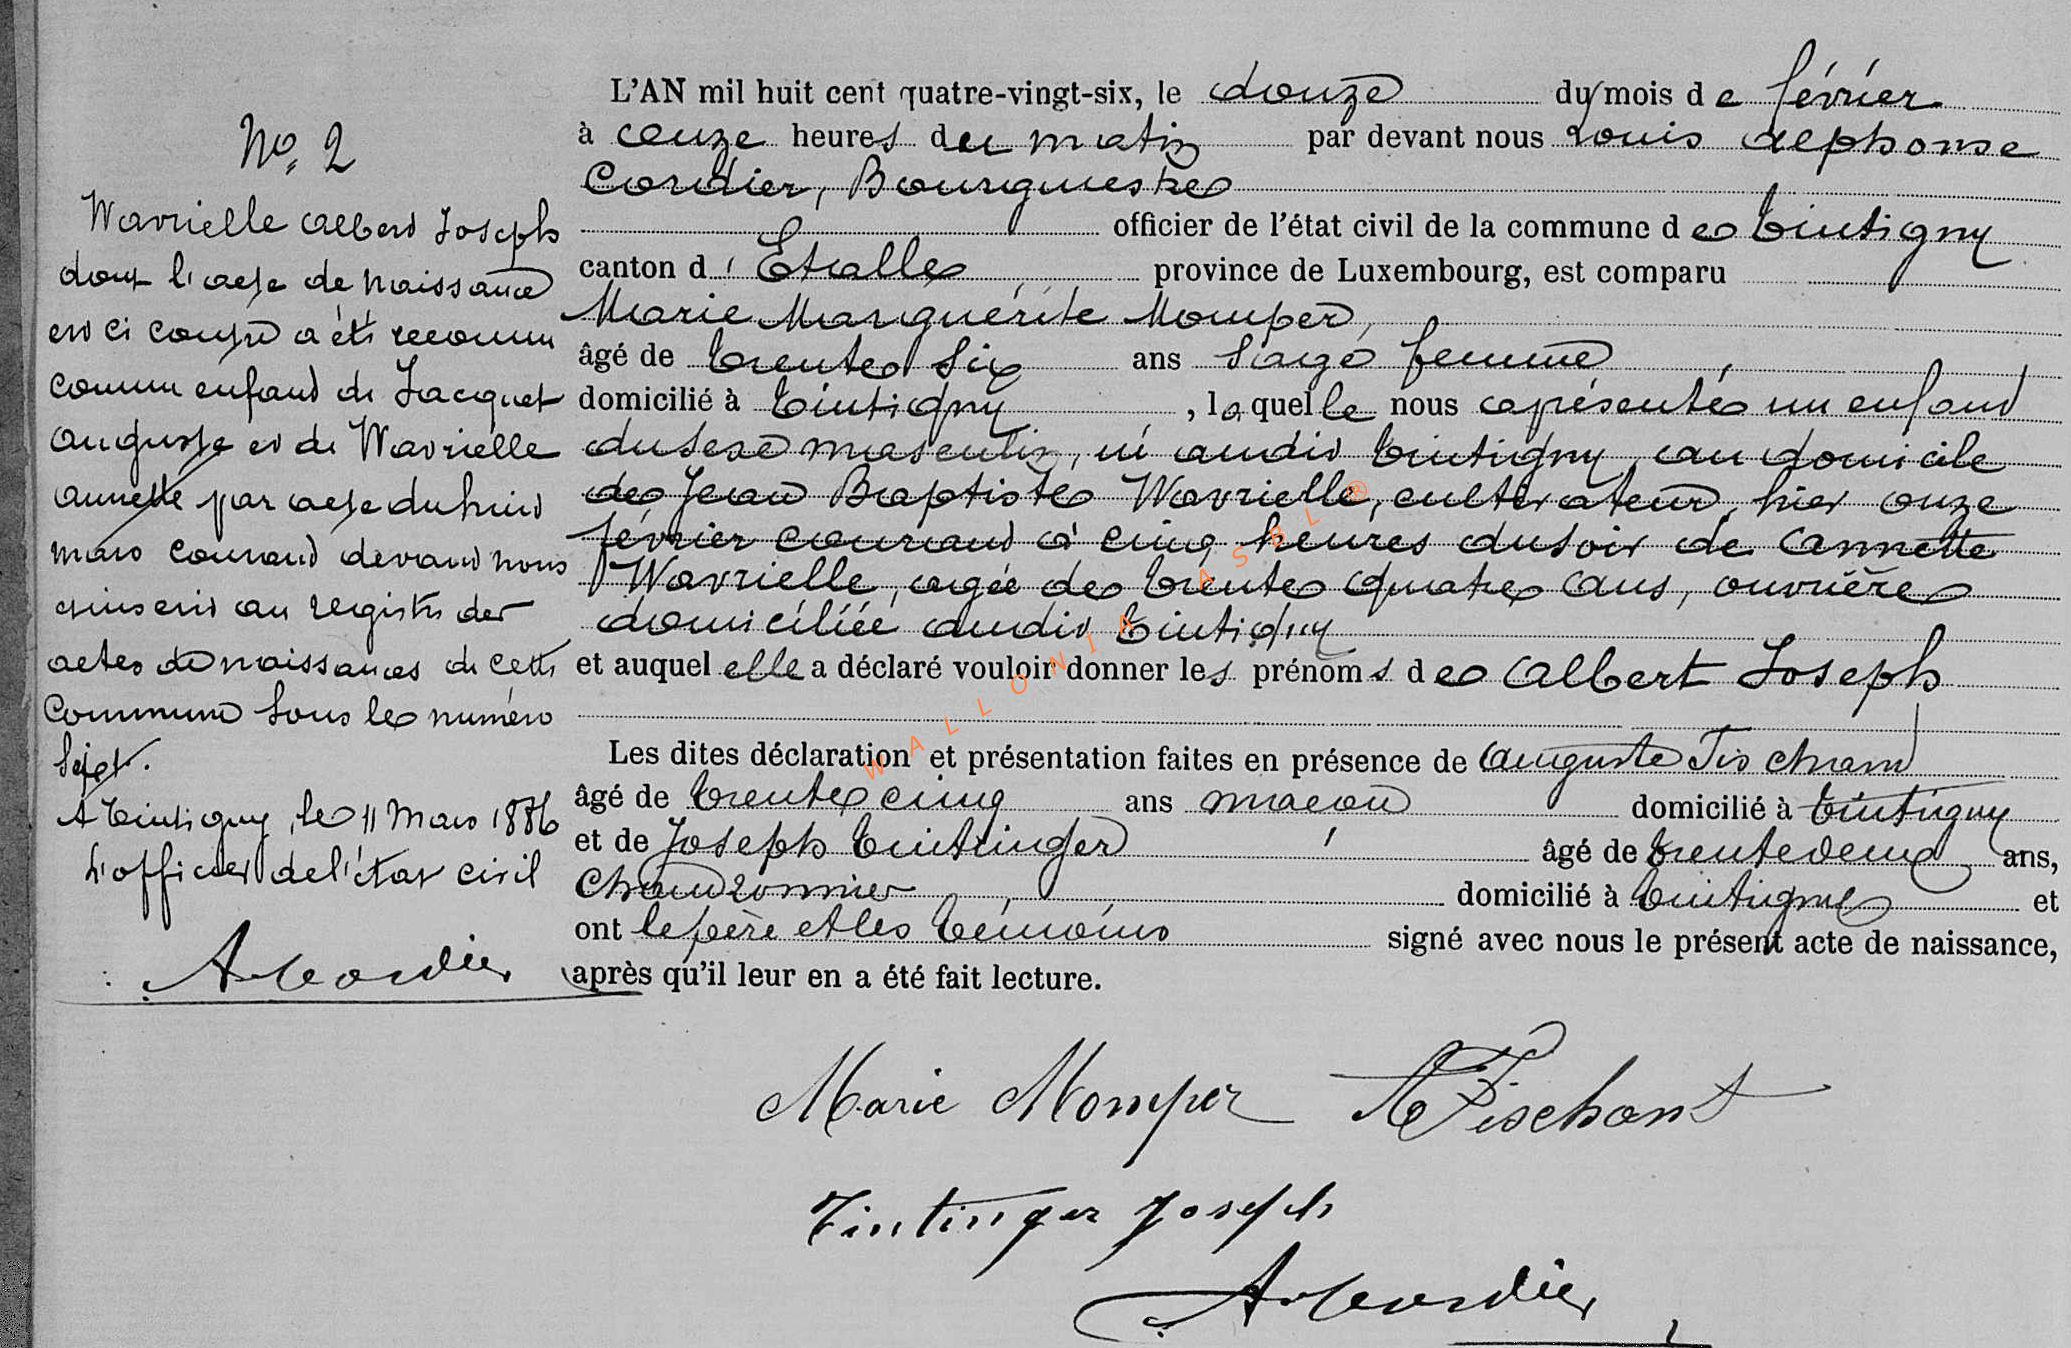 No. 2
Wavrielle Albert Joseph
dont l'acte de naissance
est ci contre a été reconnu
comme enfant de Jacquet
Auguste et de Wavrielle
Annette par acte du huit
mars courant devant nous
et inscrit au registre des
actes de naissances de cette
Commune sous le numéro
sept.
A Tintigny, le 11 Mars 1886
L'officier de l'état civil
A. Cordier
L'AN mil huit cent quatre-vingt-six, le douze du mois de février
à onze heures du matin par devant nous Louis Alphonse
Cordier, Bourgmestre
officier de l'état civil de la commune de Tintigny
canton d'Etalle province de Luxembourg, est comparu
Marie Marguérite Momper,
âgé de trente six ans sage femme
domicilié à Tintigny, laquelle nous a présenté un enfant
du sexe masculin, né audit Tintigny, au domicile
de Jean Baptiste Wavrielle, cultivateur, hier onze
février courant à cinq heures du soir de Annette
Wavrielle, agée de trente quatre ans, ouvrière
domiciliée audit Tintigny
et auquel elle a déclaré vouloir donner les prénoms de Albert Joseph
Les dites déclaration et présentation faites en présence de Auguste Tischant
âgé de trente cinq ans macon domicilié à Tintigny
et de Joseph Tintinger âgé de trente deux ans,
Chaudronnier domicilié à Tintigny et
ont le père et les témoins signé avec nous le présent acte de naissance,
après qu'il leur en a été fait lecture.
WALLONIA ASBL ®
Marie Momper A Tischant
Tintinger Joseph
A. Cordier